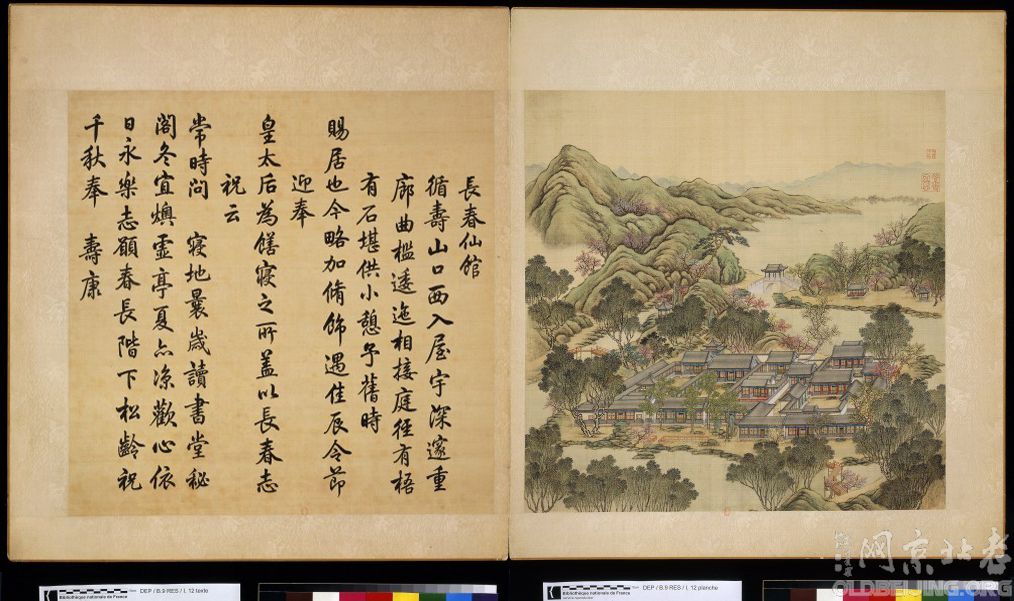 長春仙館
循壽山口西入屋宇深邃重
廊曲檻逶迤相接庭徑有梧
有石堪供小憩予舊時
賜居也今略加脩飾遇佳辰令節
迎奉
皇太后為饍寢之所蓋以長春志
祝云
常時問 寢地曩歲讀書堂秘
閣冬宜燠虛亭夏亦涼歡心依
日永樂志願春長階下松齡祝
千秋奉 壽康
Bibliothèque nationale de France
DEP / B.9 RES / l. 12 texte
Bibliothèque nationale de France
DEP / B.9 RES / l. 12 planche
老北京网
OLDBEIJING.ORG